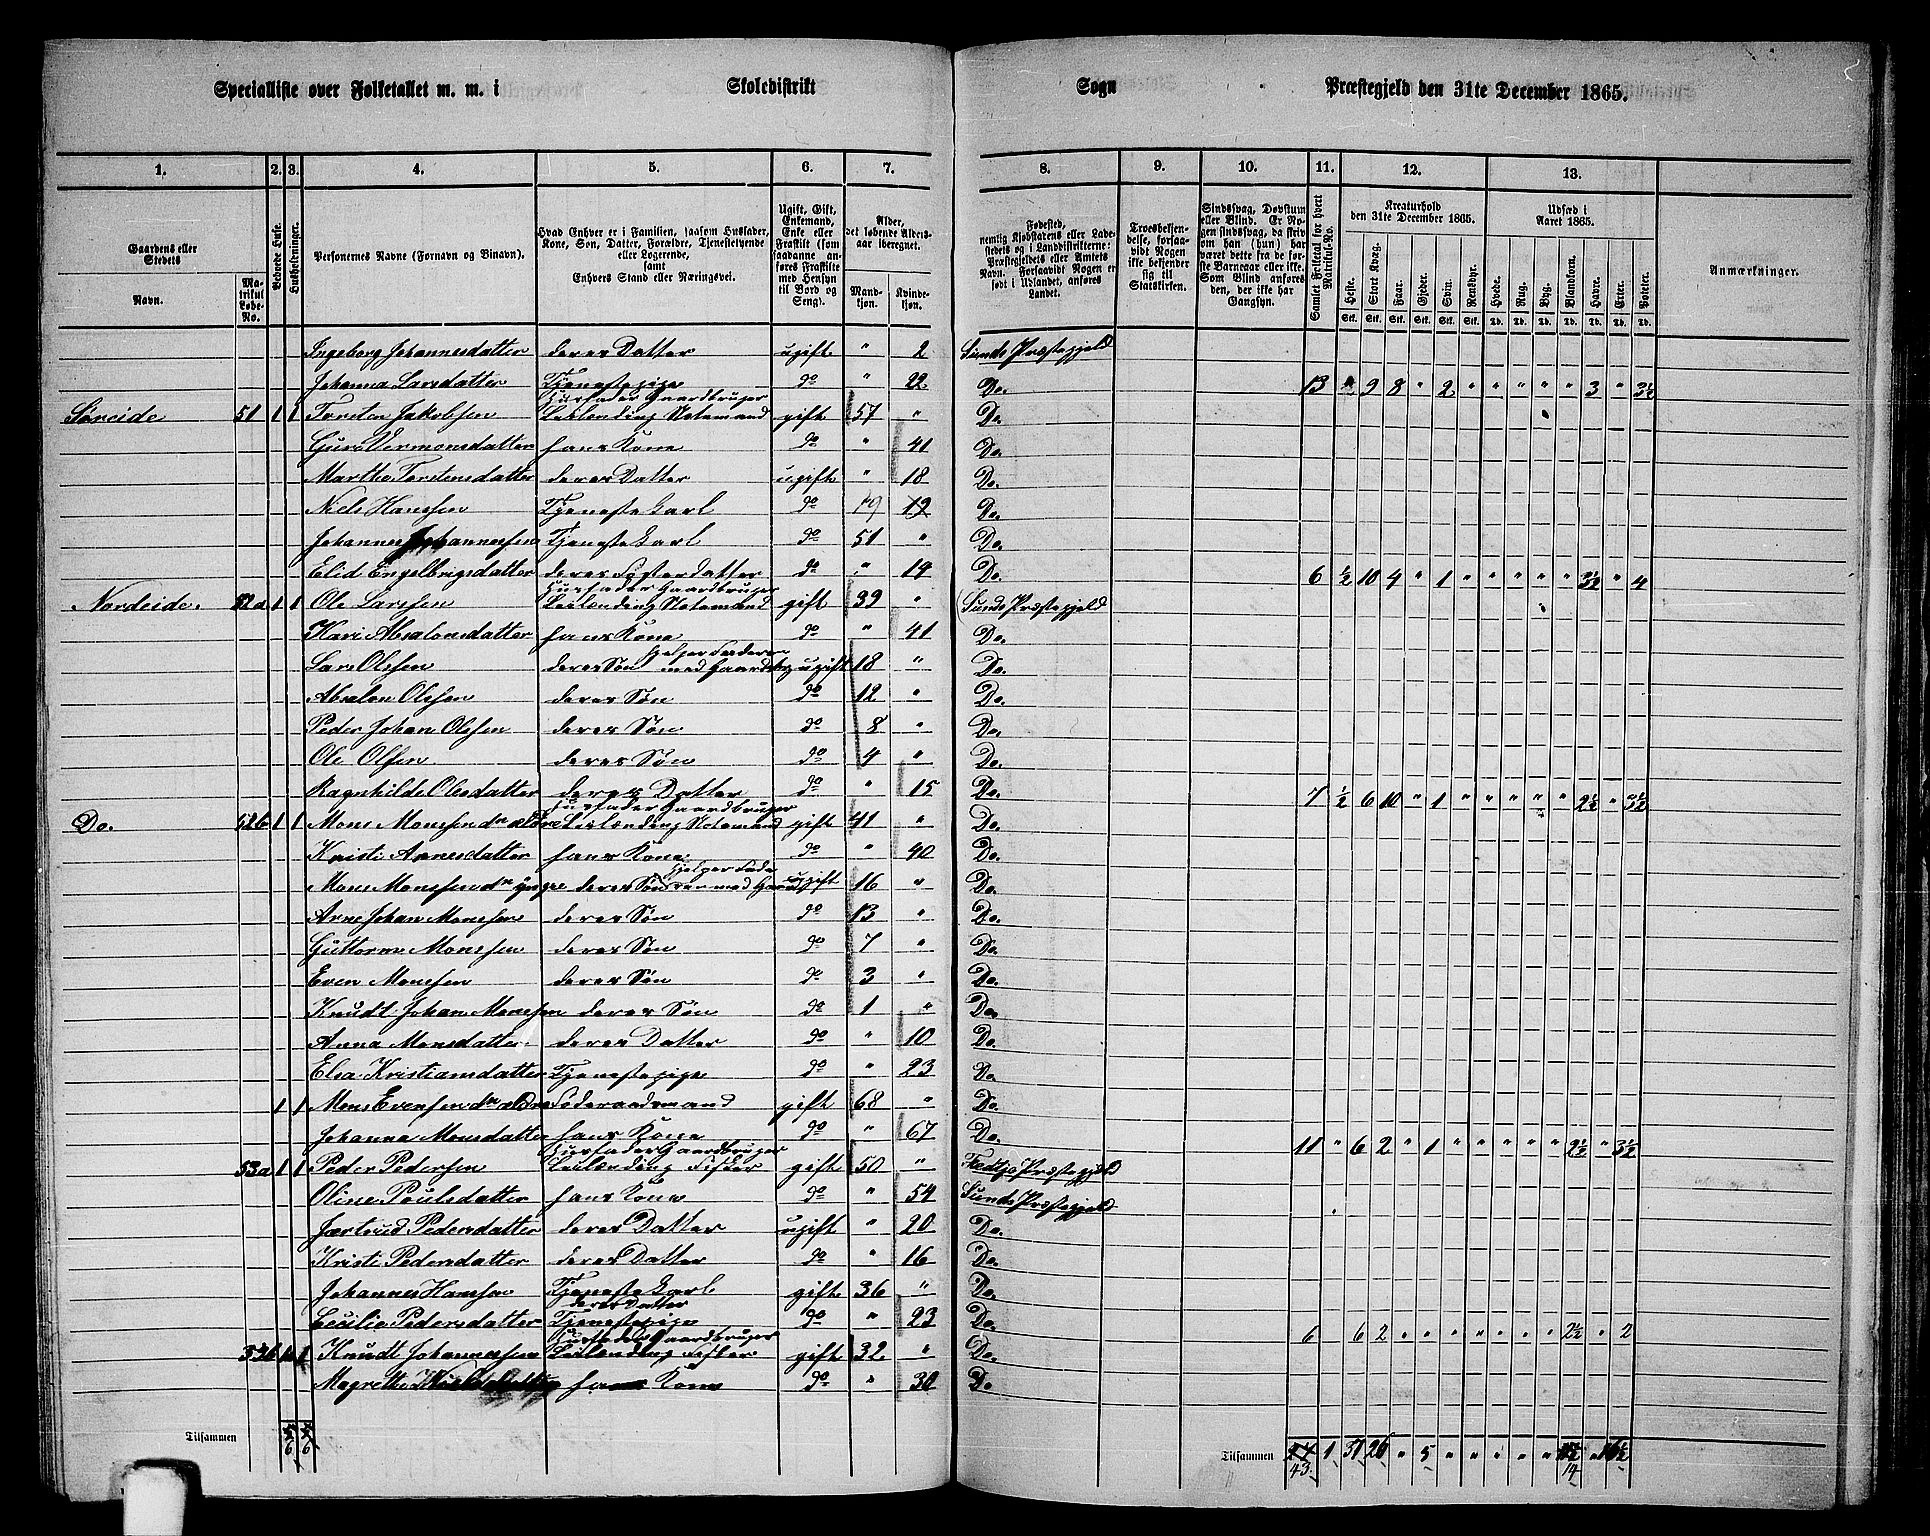 Specialliste over Folketallet m. m. i Skoledistrikt Sogn Præstegjeld den 31te December 1865.
1. 2. 3. 4. 5. 6. 7. 8. 9. 10. 11. 12. 13.
Gaardens eller Stedets Navn. Matrikul Løbe-No. Beboede Huse. Husholdninger. Personernes Navne (Fornavn og Binavn). Hvad Enhver er i Familien, saasom Husfader, Kone, Søn, Datter, Forældre, Tjenestetyende eller Logerende, samt Enhvers Stand eller Næringsvei. Ugift, Gift, Enkemand, Enke eller Fraskilt (som saadanne anføres Fraskilte med Hensyn til Bord og Seng). Alder, det løbende Aldersaar iberegnet. Mandkjøn. Kvindekjøn.
Fødested, nemlig Kjøbstadens eller Ladestedets og i Landdistrikterne: Præstegjeldets eller Amtets Navn. Forsaavidt Nogen er født i Udlandet, anføres Landet. Troesbekjendelse, forsaavidt Nogen ikke bekjender sig til Statskirken. Sindssvag, Døvstum eller Blind. Er Nogen sindssvag, da skriv om han (hun) har været dette fra de første Barneaar eller ikke. Som Blind anføres den, der ikke har Gangsyn. Samlet Folketal for hvert Matrikul-No. Kreaturhold den 31te December 1865. Heste. Stort Kvæg. Faar. Gjeder. Svin. Rensdyr. Udsæd i Aaret 1865. Hvede. Rug. Byg. Blandkorn. Havre. Erter. Poteter. Anmærkninger.
Stk. Stk. Stk. Stk. Stk. Stk. Td. Td. Td. Td. Td. Td. Td.
Ingeborg Johannesdatter deres Datter ugift " 2 Sunds Præstegjeld
Johanna Larsdatter Tjenestepige do " 22 Do. 13 " 9 8 " 2 " " " " " 3 " 3½
Husfader Gaardbruger
Søreide 51 1 1 Torsten Jakobsen Leilending Notemand gift 57 " Do.
Guri Vermonsdatter hans Kone do " 41 Do.
Martha Torstensdatter deres Datter ugift " 18 Do.
Niels Hanssen Tjenestekarl do 19 12 Do.
Johannes Johannessen Tjenestekarl do 51 " Do.
Elid Engelbrigsdatter deres Fosterdatter do " 19 Do. 6 ½ 10 4 " 1 " " " " " 3½ " 4
Husfader Gaardbruger
Nordeide. 52a 1 1 Ole Larssen Leilending Notemand gift 39 " Sunds Præstegjeld
Kari Absalonsdatter hans Kone do " 41 Do.
Lars Olssen deres Søn hjelper Faderen med Gaardsbr ugift 18 " Do.
Absalon Olssen deres Søn do 12 " Do.
Peder Johan Olssen deres Søn do 8 " Do.
Ole Olssen deres Søn do 4 " Do.
Ragnhilde Olesdatter deres Datter do " 15 Do. 7 ½ 6 10 " 1 " " " " " 2½ " 3½
Husfader Gaardbruger
Do. 52b 1 1 Mons Monssen dn ældre Leilænding Notemand gift 41 " Do.
Kristi Arnesdatter hans Kone do " 40 Do.
Mons Monssen dn yngre deres Søn hjelper Faderen med Gaard ugift 16 " Do.
Arne Johan Monssen deres Søn do 13 " Do.
Guttorm Monssen deres Søn do 7 " Do.
Even Monssen deres Søn do 3 " Do.
Knudt Johan Monssen deres Søn do 1 " Do.
Anna Monsdatter deres Datter do " 10 Do.
Elsa Kristiansdatter Tjenestepige do " 23 Do.
1 1 Mons Evensen dn ældre Føderaadsmand gift 68 " Do.
Johanna Monsdatter hans Kone do " 67 Do. 11 " 6 2 " 1 " " " " " 2½ " 3½
Husfader Gaardbruger
53a 1 1 Peder Pedersen Leilænding Fisker gift 50 " Fedtje Præstegjeld
Oline Poulsdatter hans Kone do " 54 Sunds Præstegjeld
Jørtrud Pedersdatter deres Datter ugift " 20 Do.
Kristi Pedersdatter deres Datter do " 16 Do.
Johannes Hanssen Tjenestekarl gift 36 " Do.
deres Datter
Cecilie Pedersdatter Tjenestepige do " 23 Do. 6 6 2 " " " " " " 2½ " 2
Husfader Gaardbruger
53b 1 1 Knudt Johannessen Leilending Fisker gift 32 " Do.
Magretha hans Kone do " 30 Do
Tilsammen 6 6 Tilsammen 43 1 37 26 " 5 " " " " 14 " 16½